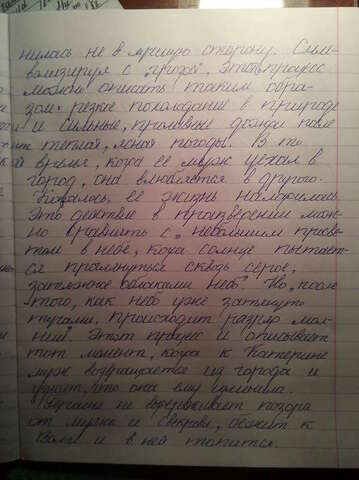 нилась не в лучшую сторону. Сим-
волизируя с "грозой", этот процесс
можно описать таким обра-
зом: резкое похолодание в природе
и сильные, проливные дожди после
теплой, ясной погоды. В то
время, когда её муж уехал в
город, она влюбляется в другого.
Казалось, её жизнь наладилась.
Это действие в произведении мож-
но сравнить с "небольшим просве-
том в небе, когда солнце пытает-
ся проглянуться сквозь серое,
затянутое облаками небо". Но, после
того, как небо уже затянуто
тучами, происходит разряд мол-
нии. Этот процесс и описывает
тот момент, когда к Катерине
муж возвращается из города и
узнаёт, что она ему изменила.
не выдерживает позора
от мужа и свекрови, бежит к
Волге и в ней топится.